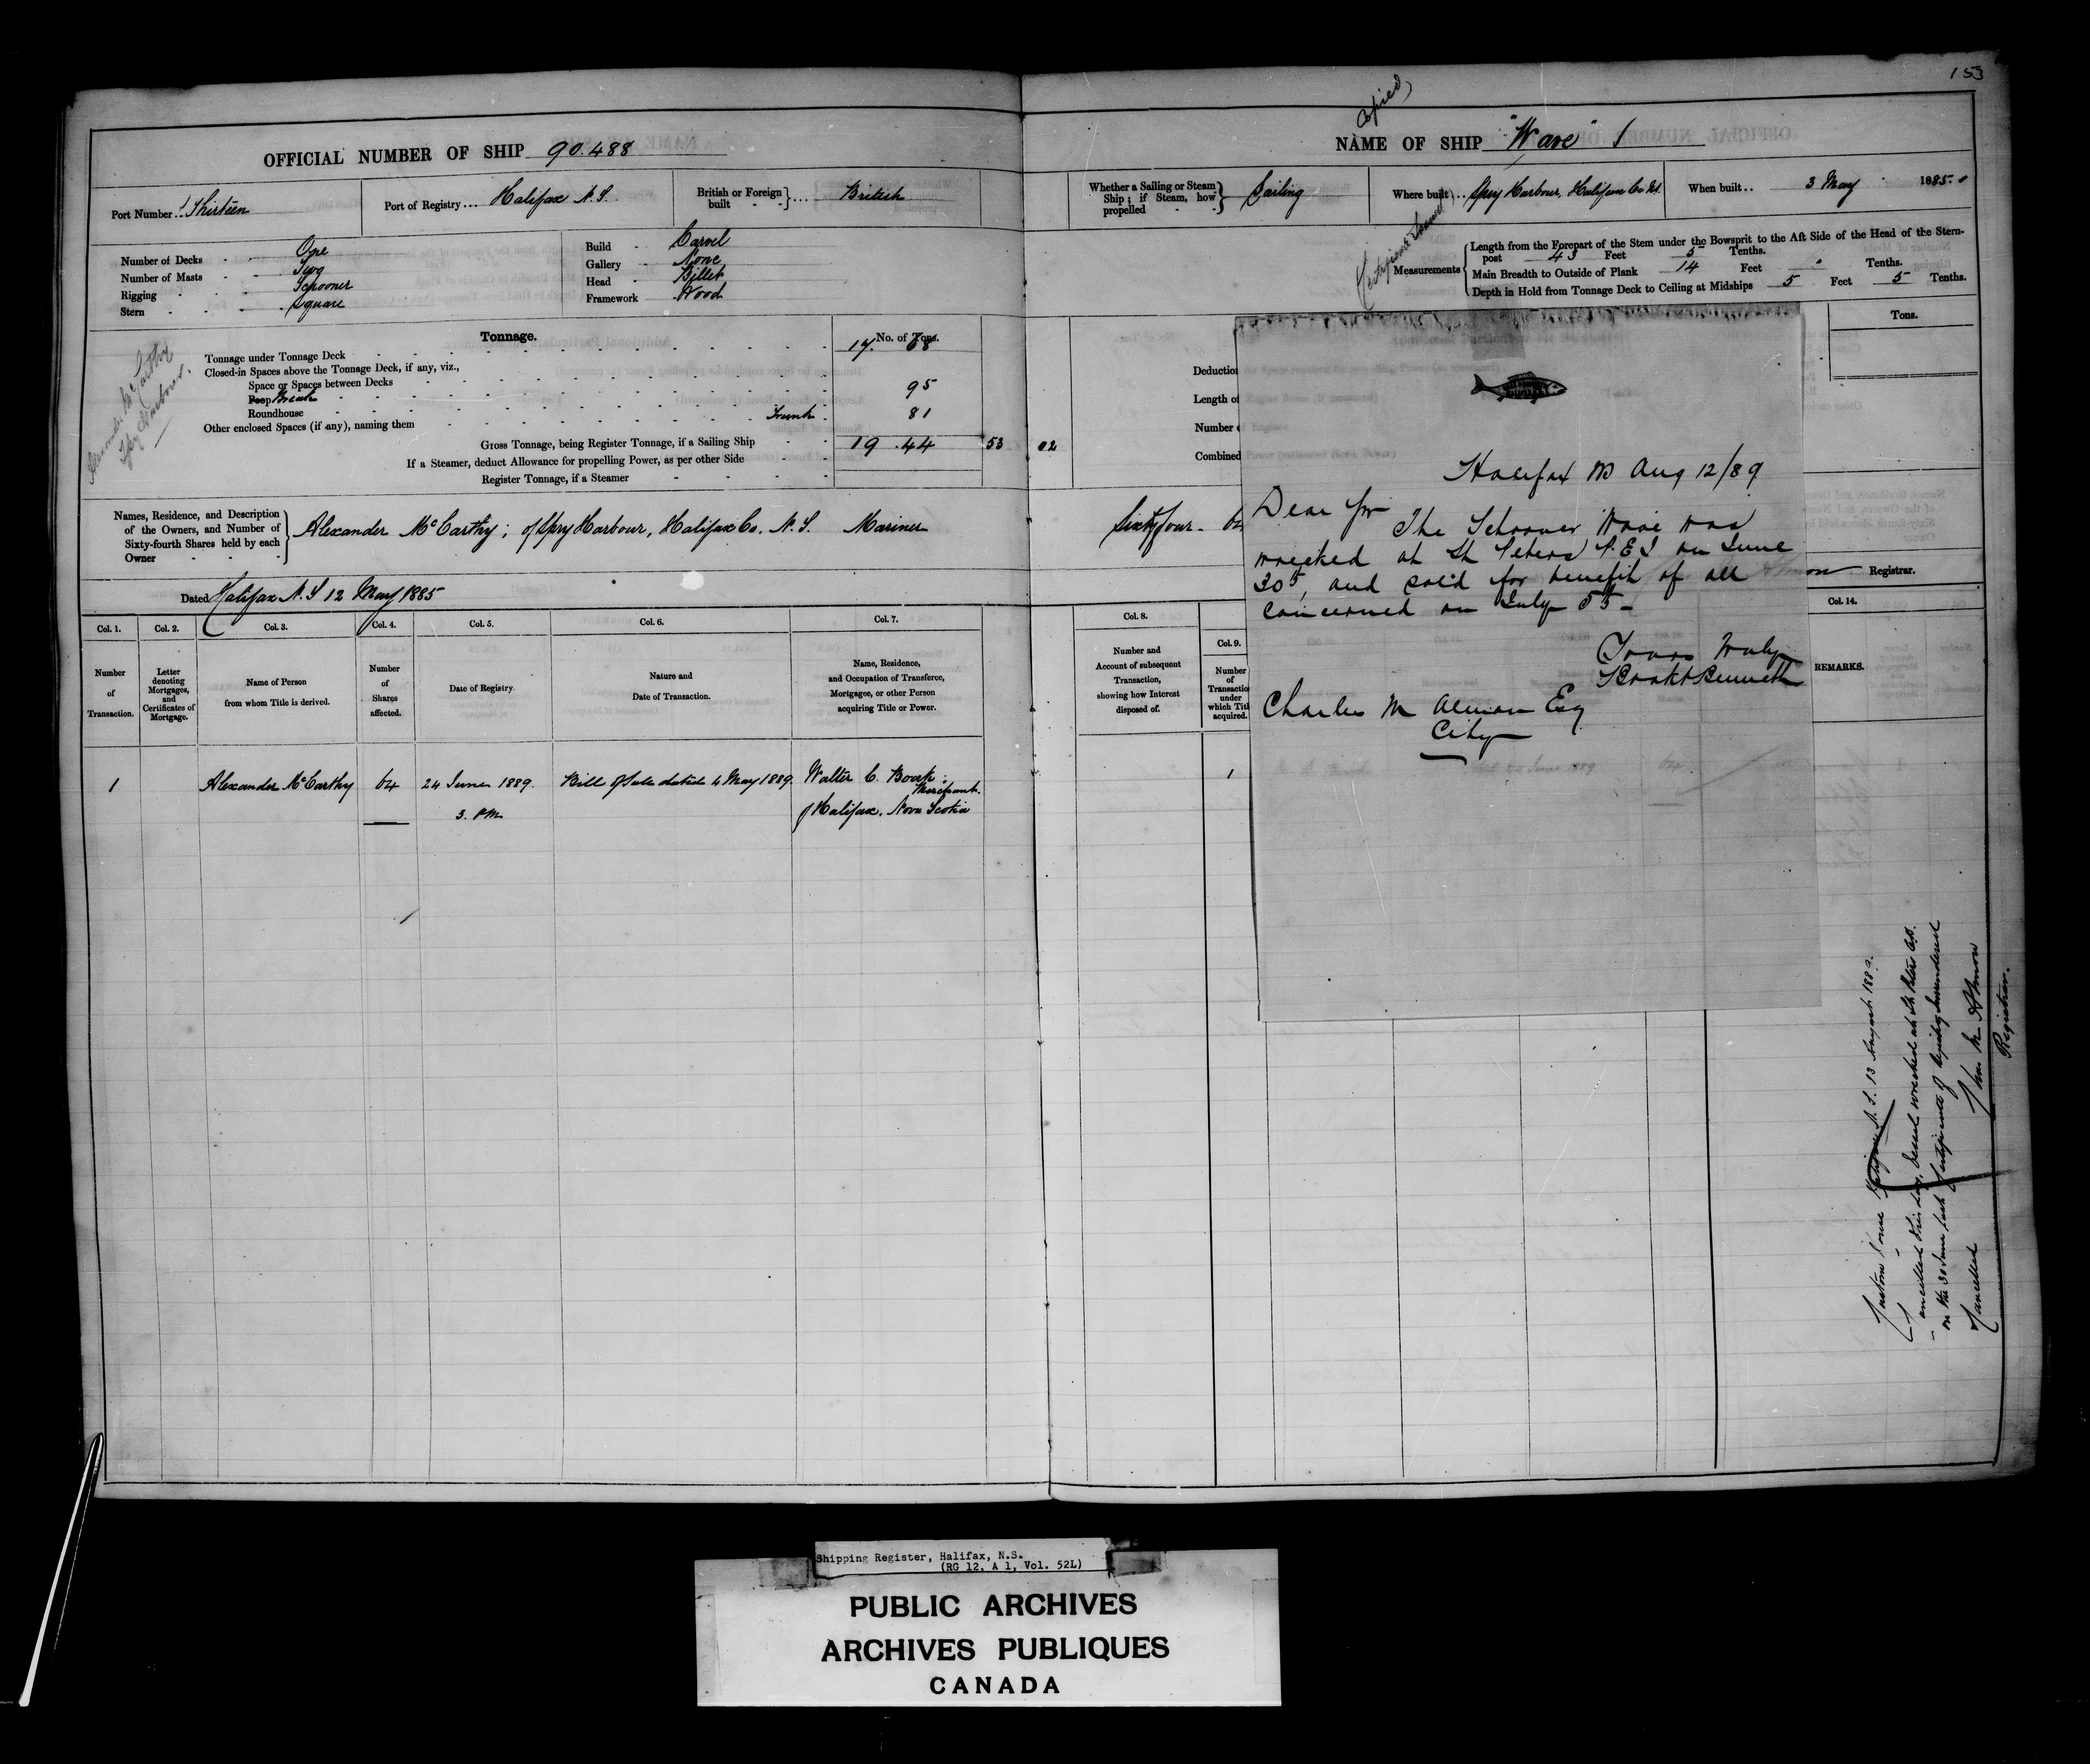 153
Copied
OFFICIAL NUMBER OF SHIP 90.488
Port Number... Thirteen
Port of Registry... Halifax N.S.
British or Foreign built - - } ... British
Number of Decks - - One
Number of Masts - - Two
Rigging - - - Schooner
Stern - - - Square
Build - Carvel
Gallery - None
Head - Billet
Framework - Wood
Alexander McCarthy
Spry Harbour.
Tonnage.
No. of Tons.
Tonnage under Tonnage Deck 17. 68
Closed-in Spaces above the Tonnage Deck, if any, viz.,
Space or Spaces between Decks
Poop Break 95
Roundhouse
Other enclosed Spaces (if any), naming them Trunk - 81
Gross Tonnage, being Register Tonnage, if a Sailing Ship 19 .44 53 02
If a Steamer, deduct Allowance for propelling Power, as per other Side
Register Tonnage, if a Steamer
Names, Residence, and Description of the Owners, and Number of Sixty-fourth Shares held by each Owner - - -
Alexander McCarthy; of Spry Harbour, Halifax Co. N.S. Mariner
Dated Halifax N.S 12 May 1885
Col. 1. Col. 2. Col. 3. Col. 4. Col. 5. Col. 6. Col. 7.
Number of Transaction.
Letter denoting Mortgages, and Certificates of Mortgage.
Name of Person from whom Title is derived.
Number of Shares affected.
Date of Registry.
Nature and Date of Transaction.
Name, Residence, and Occupation of Transferee, Mortgagee, or other Person acquiring Title or Power.
1 Alexander McCarthy 64 24 June 1889. Bill of Sale dated 4 May 1889. Walter C. Boak;
Merchant.
3. PM of Halifax, Nova Scotia
NAME OF SHIP "Wave" 1
Whether a Sailing or Steam Ship; if Steam, how propelled - - } Sailing
Where built... Spry Harbour, Halifax Co NS.
When built.. 3 May 1885.
Measurements
Length from the Forepart of the Stem under the Bowsprit to the Aft Side of the Head of the Stern-
post 43 Feet 5 Tenths.
Main Breadth to Outside of Plank 14 Feet Tenths.
Depth in Hold from Tonnage Deck to Ceiling at Midships 5 Feet 5 Tenths.
Tons.
Deduction
Length of
Number
Combined
Sixty four - 64
Registrar.
Col. 8. Col. 9. Col. 14.
Number and Account of subsequent Transaction, showing how Interest disposed of.
Number of Transaction under which Title acquired.
REMARKS.
1
Halifax NS Aug 12/89
Dear Sir
The Schooner Wave was
wrecked at St Peters P.E.I on June
30th, and sold for benefit of all
concerned on July 5th -
Yours truly
Boak & Bennett
Charles M Almon Esq
City
Custom House Halifax N.S. 13 August 1889.
Cancelled this day, Vessel wrecked at St Peters
on the 30 June last Certificate of Registry surrendered
Cancelled
Chas M Almon
Registrar.
Shipping Register, Halifax, N.S.
(RG 12, A 1, Vol. 52L)
PUBLIC ARCHIVES
ARCHIVES PUBLIQUES
CANADA